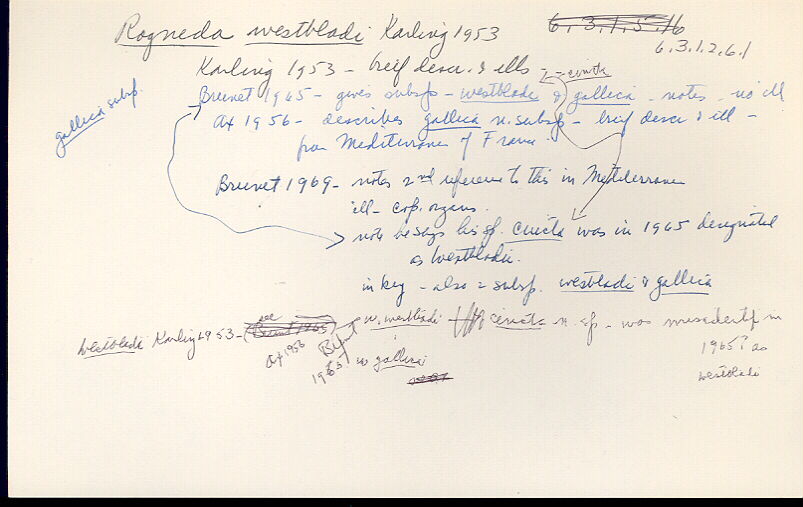 Rogneda westbladi Karling 1953
6.3.1.5.16
6.3.1.2.6.1
Karling 1953 - brief descr. & ills - = cincta
gallica subsp.
Brunet 1965 - gives subsp - westbladi & gallica - notes - no ill
Ax 1956 - describes gallica n. subsp - brief descr & ill -
from Mediterranean of France.
Brunet 1969 - notes 2nd reference to this in Mediterranean
ill - cop. organs.
note he says his sp. cincta was in 1965 designated
as westbladi.
in key - also 2 subsp. westbladi & gallica
westbladi Karling 1953 - (see Brunet 1965) w. westbladi cincta n. sp. - was misidentif in
Ax 1956 Brunet 1965 w gallica
1965? as
westbladi